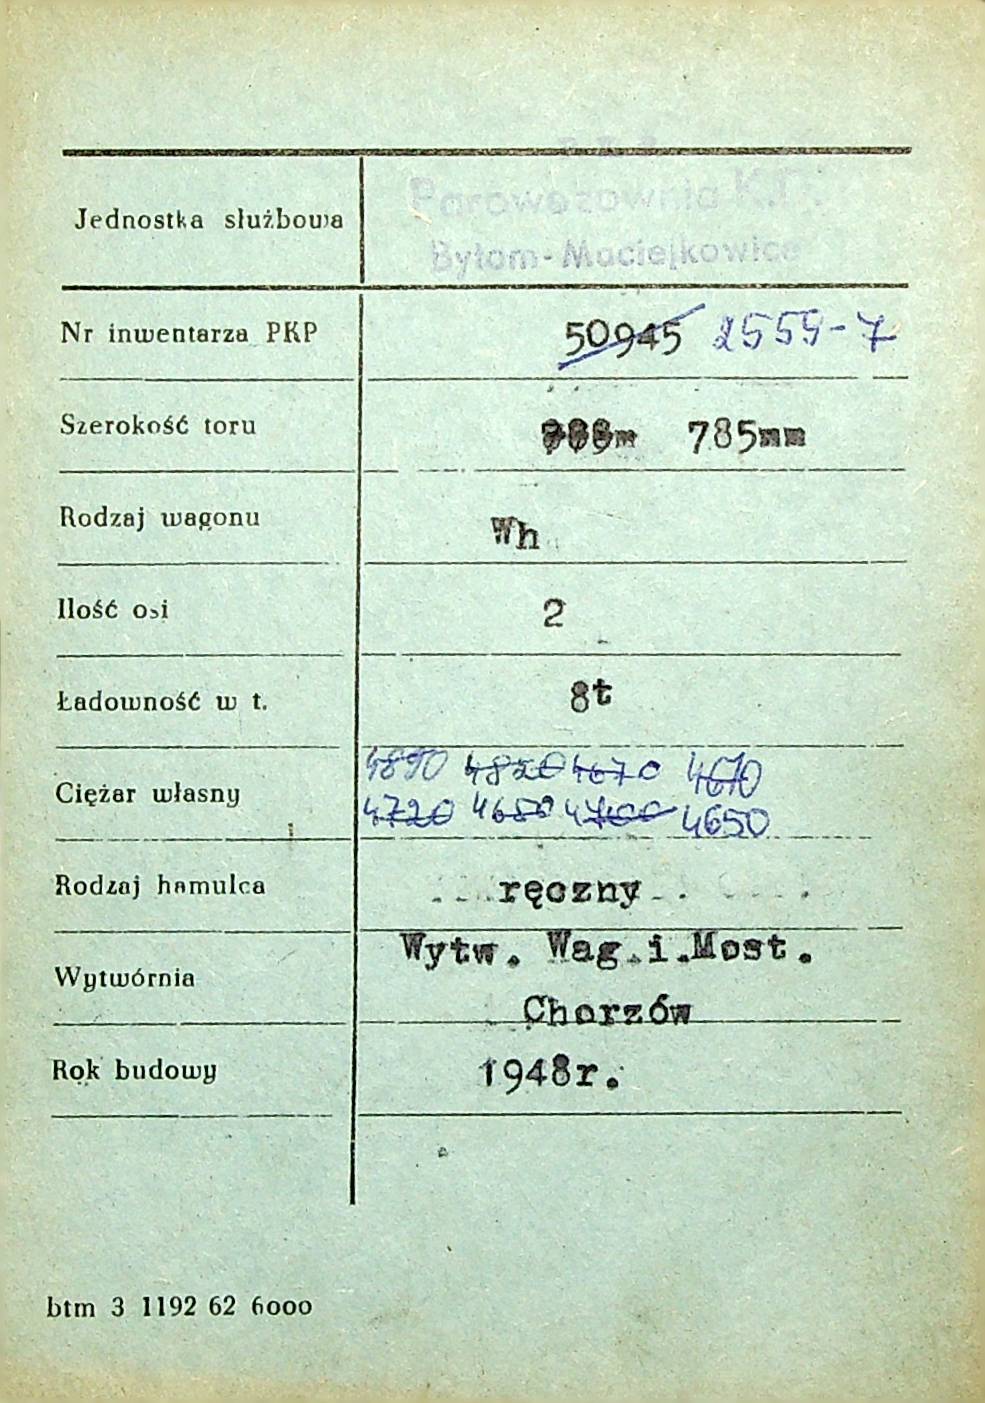 P. K. P.
Parowozownia K.D.
Bytom-Maciejkowice
Jednostka służbowa
Nr inwentarza PKP 50945 2559-7
Szerokość toru 785mm
Rodzaj wagonu Wh
Ilość osi 2
Ładowność w t. 8t
Ciężar własny 4890 4820 4670 4670
4720 4680 4700 4650
Rodzaj hamulca ręczny
Wytwórnia Wytw. Wag.i.Most.
Chorzów
Rok budowy 1948r.
btm 3 1192 62 6000